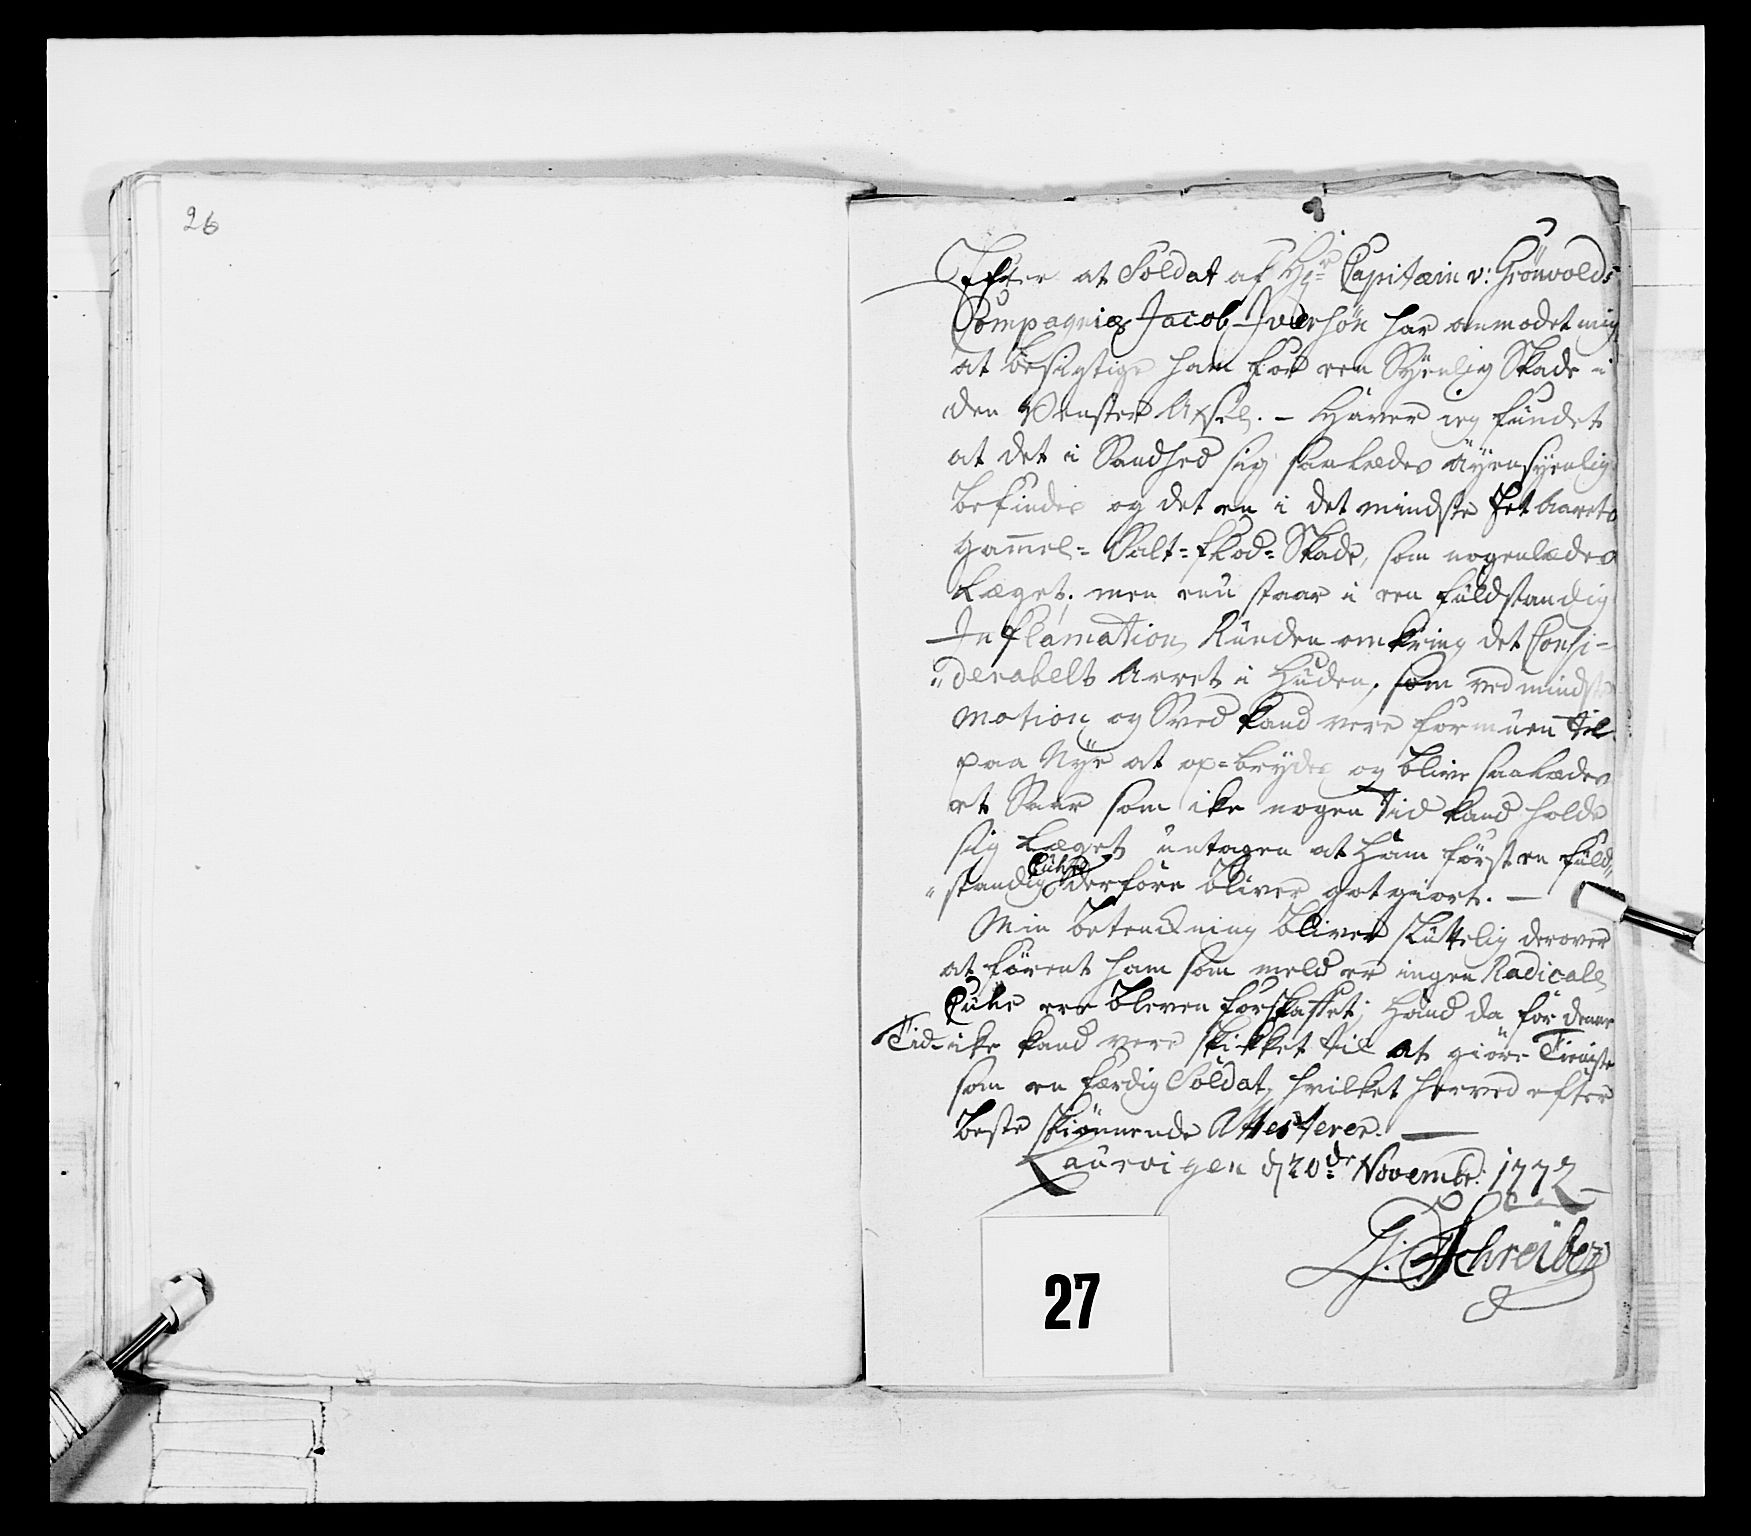 26
Efter at Soldat af Hr Capitain v: Grönvolds
Compagnie Jacob Iversøn har anmodet mig
at besigtige ham for een Syenlig Skade i
den Venster Axsel. – Haver ieg fundet
at det i Sandhed sig saaledes Øyensyenlig
befindes og det en i det mindste Et Aarets
gammel= Salt=flod=Skade, som nogenledes
Læget; men enu staar i een fuldstandig
Inflamation Runden omkring det Consi-
"derabelt Arret i Huden, som ved mindste
motion og Sved kand vere formuen til
paa Nye at op=brydes og blive saaledes
et Saar som ike nogen Tid kand holde
sig Læget untagen at Ham først en fuld"
"standig Cuhr derfore bliver gotgiort. —
Min betenckning bliver sluttelig derover
at førent ham som meld er ingen Radicale
Cuhr ere bleven forskaffet; Hand da for denne
Tid ike kand vere skikket til at giøre Tieniste
som en færdig Soldat, hvilket herved efter
beste skiönnende Attesterer. —
Laurvigen d 20de Novembr: 1772 —
Schreiber
27